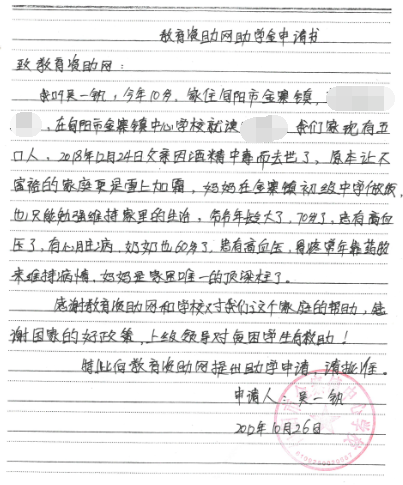 教育资助网助学金申请书
致教育资助网：
我叫吴一凯，今年10岁，家住旬阳市金寨镇，
，在旬阳市金寨镇中心学校就读 我们家现有五
口人，2018年12月24日父亲因酒精中毒而去世了，原本让不
富裕的家庭更是雪上加霜，奶奶在金寨镇初级中学做饭，
也只能勉强维持家里的生活。爷爷年龄大了，70岁了，患有高血
压了，有心脏病，奶奶也60岁了，患有高血压，胃疼常年靠药
来维持病情，奶奶是家里唯一的顶梁柱了。
感谢教育资助网和学校对我们这个家庭的帮助，感
谢国家的好政策，上级领导对贫困学生的救助！
特此向教育资助网提出助学申请，请批准。
申请人：吴一
10月26日